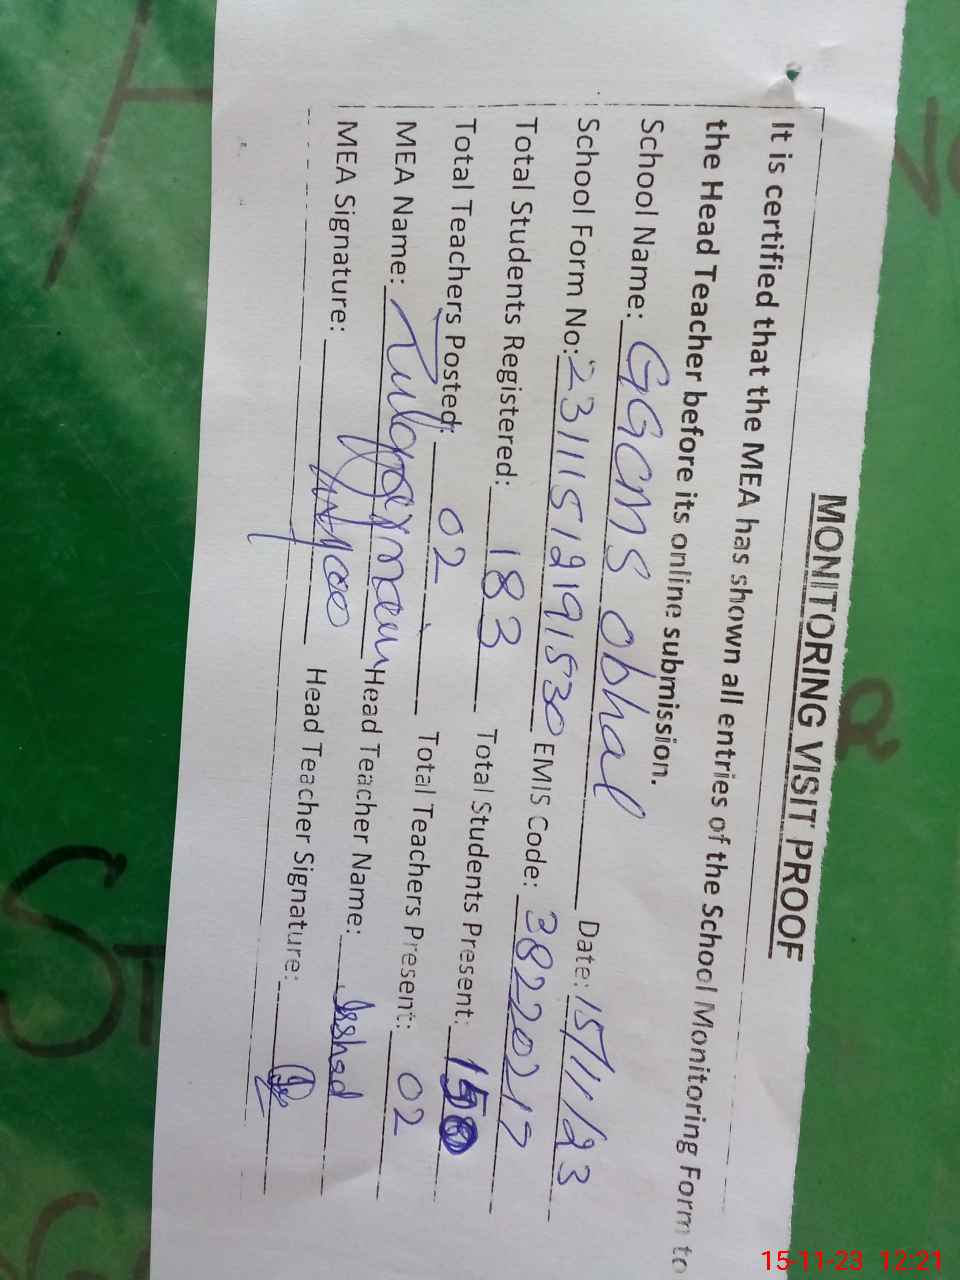 MONITORING VISIT PROOF
It is certified that the MEA has shown all entries of the School Monitoring Form to
the Head Teacher before its online submission.
School Name: GGCMS Obhal Date: 15/11/23
School Form No: 23111512191530 EMIS Code: 38220217
Total Students Registered: 183 Total Students Present: 150
Total Teachers Posted: 02 Total Teachers Present: 02
MEA Name: Head Teacher Name: Irshad
MEA Signature: Head Teacher Signature:
15-11-23 12:21